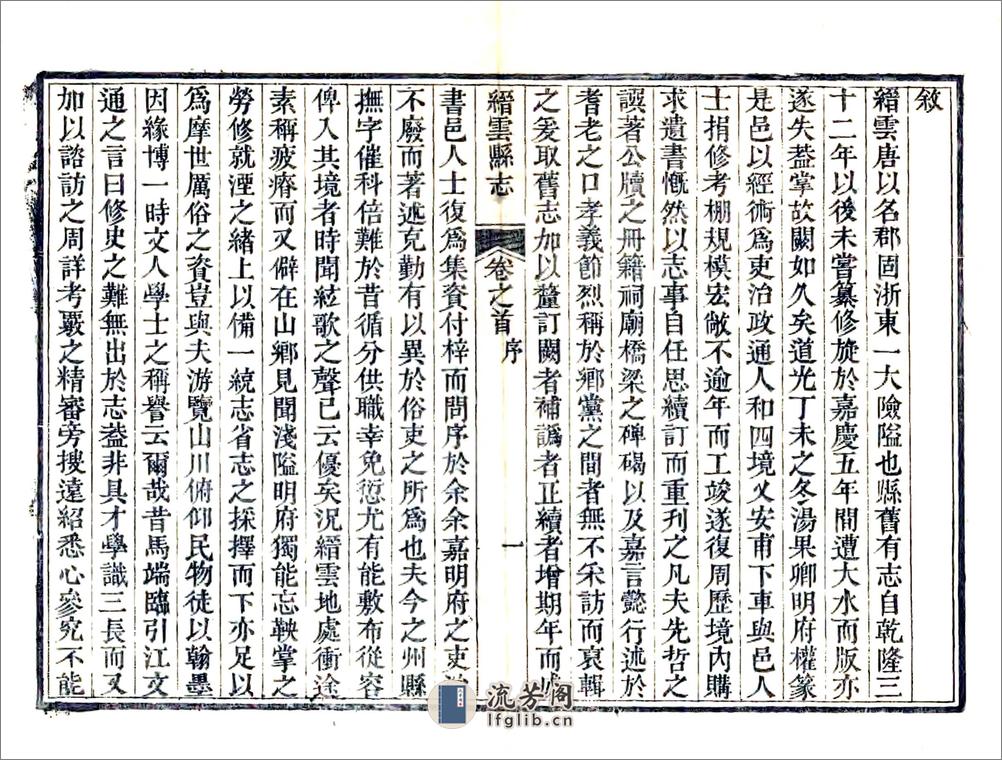 敘
縉雲唐以名郡固浙東一大險隘也縣舊有志自乾隆三
十二年以後未嘗纂修旋於嘉慶五年間遭大水而版亦
遂失葢掌故闕如久矣道光丁未之冬湯果卿明府權篆
是邑以經術爲吏治政通人和四境乂安甫下車與邑人
士捐修考棚規模宏敞不逾年而工竣遂復周歷境內購
求遺書慨然以志事自任思續訂而重刊之凡夫先哲之
譔著公牘之冊籍祠廟橋梁之碑碣以及嘉言懿行述於
耆老之口孝義節烈稱於鄉黨之間者無不采訪而裒輯
之爰取舊志加以釐訂闕者補譌者正續者增期年而成
縉雲縣志
卷之首
序
一
書邑人士復爲集資付梓而問序於余余嘉明府之吏治
不廢而著述克勤有以異於俗吏之所爲也夫今之州縣
撫字催科倍難於昔循分供職幸免愆尤有能敷布從容
俾入其境者時聞絃歌之聲已云優矣況縉雲地處衝途
素稱疲瘠而又僻在山鄉見聞淺隘明府獨能忘鞅掌之
勞修就湮之緒上以備一統志省志之採擇而下亦足以
爲摩世厲俗之資豈與夫游覽山川俯仰民物徒以翰墨
因緣博一時文人學士之稱譽云爾哉昔馬端臨引江文
通之言曰修史之難無出於志葢非具才學識三長而又
加以諮訪之周詳考覈之精審旁搜遠紹悉心參究不能
流芳阁
lfglib.cn